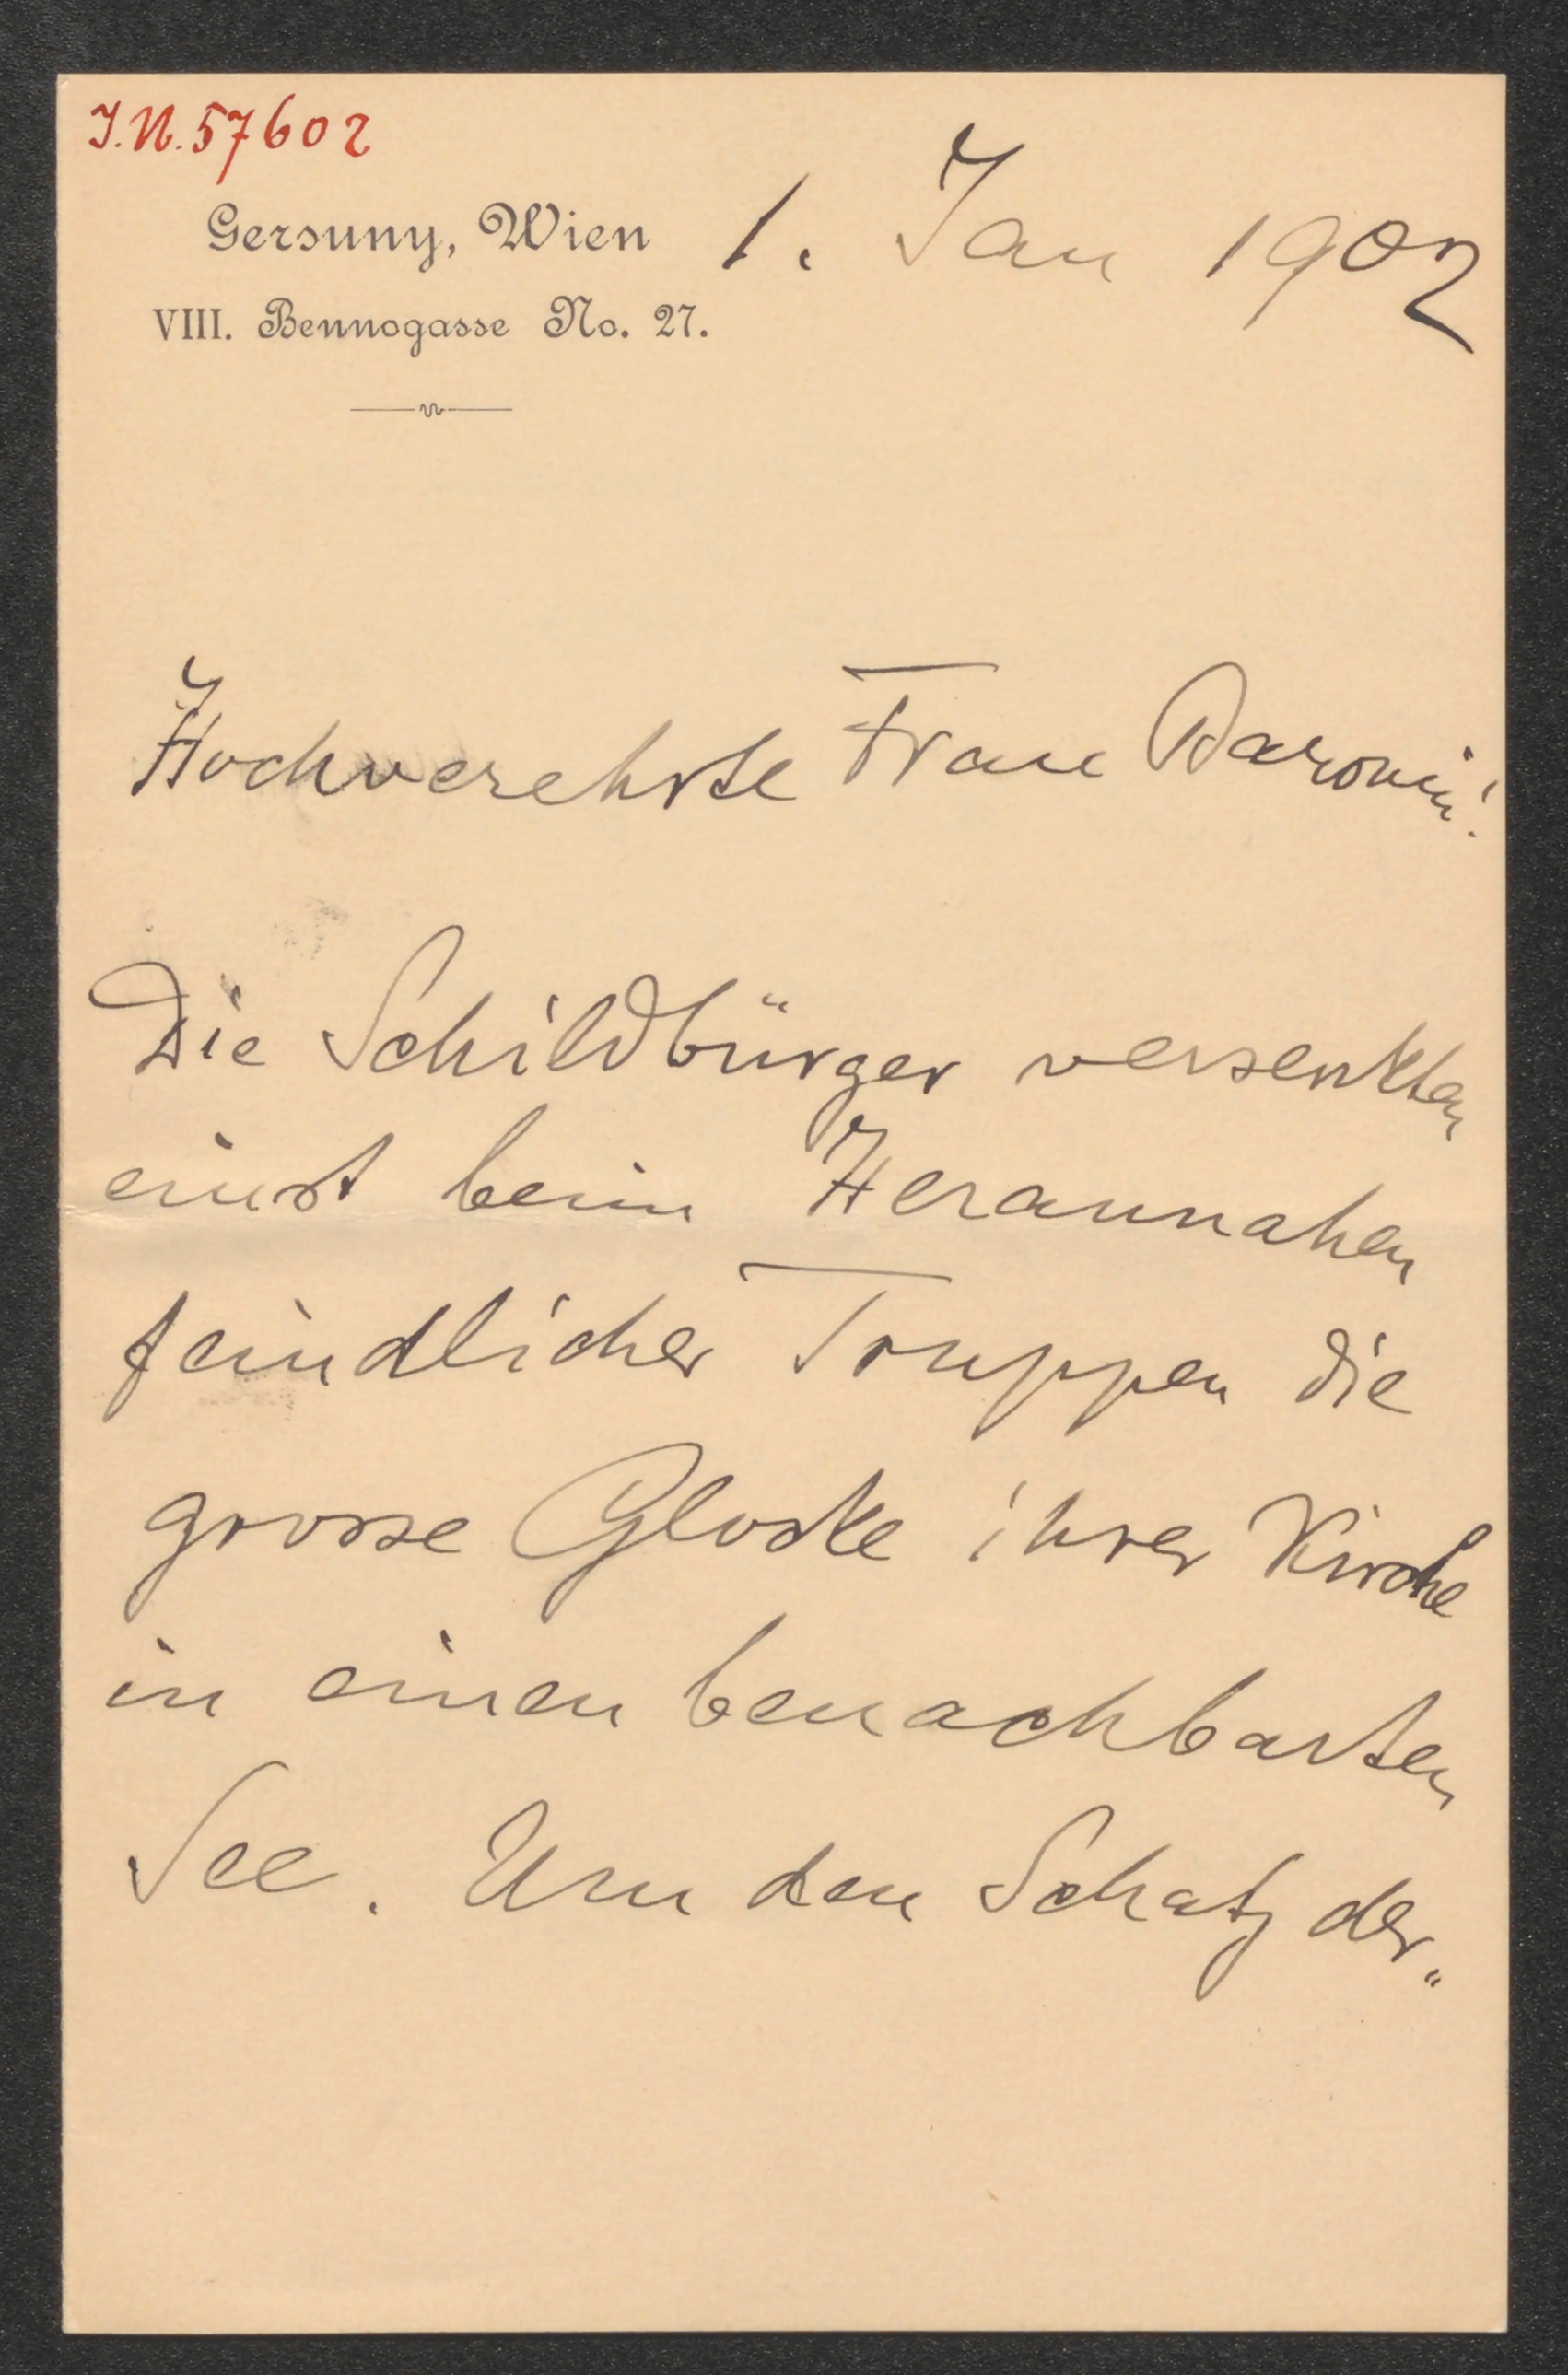 I.N. 57602
Gersuny, Wien
VIII. Bennogasse No. 27.
1. Jan 1902
Hochverehrte Frau Baronin!
Die Schildbürger versenkten
einst beim Herannahen
feindlicher Truppen die
grosse Glocke ihrer Kirche
in einen benachbarten
See. Um den Schatz der„